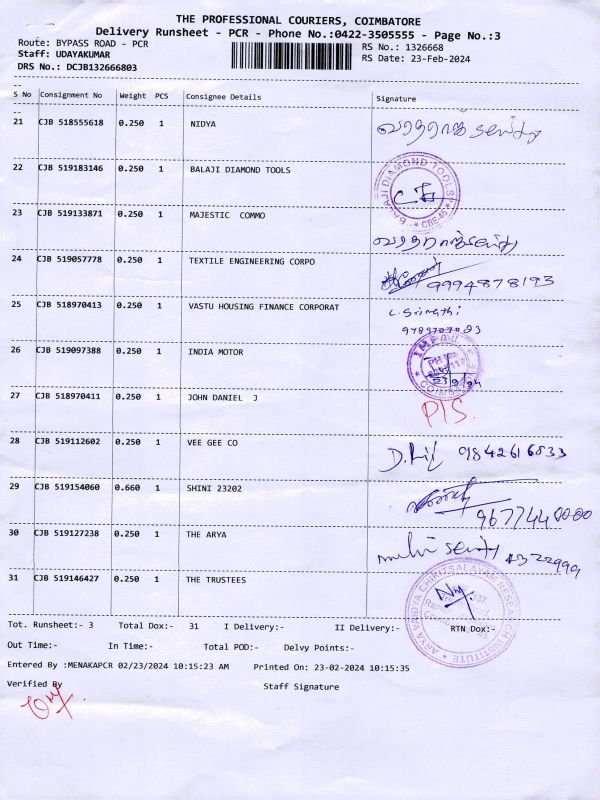 THE PROFESSIONAL COURIERS, COIMBATORE
Delivery Runsheet - PCR - Phone No.:0422-3505555 - Page No.:3
Route: BYPASS ROAD - PCR RS No.: 1326668
Staff: UDAYAKUMAR RS Date: 23-Feb-2024
DRS No.: DCJB132666803
S No Consignment No Weight PCS Consignee Details Signature
21 CJB 518555618 0.250 1 NIDYA
22 CJB 519183146 0.250 1 BALAJI DIAMOND TOOLS
BALAJI DIAMOND TOOLS * CBE-45 *
23 CJB 519133871 0.250 1 MAJESTIC COMMO
24 CJB 519057778 0.250 1 TEXTILE ENGINEERING CORPO
9994878193
25 CJB 518970413 0.250 1 VASTU HOUSING FINANCE CORPORAT
26 CJB 519097388 0.250 1 INDIA MOTOR
27 CJB 518970411 0.250 1 JOHN DANIEL J
28 CJB 519112602 0.250 1 VEE GEE CO
29 CJB 519154060 0.660 1 SHINI 23202
30 CJB 519127238 0.250 1 THE ARYA
31 CJB 519146427 0.250 1 THE TRUSTEES
Tot. Runsheet:- 3 Total Dox:- 31 I Delivery:- II Delivery:- RTN Dox:-
Out Time:- In Time:- Total POD:- Delvy Points:-
Entered By :MENAKAPCR 02/23/2024 10:15:23 AM Printed On: 23-02-2024 10:15:35
Verified By Staff Signature